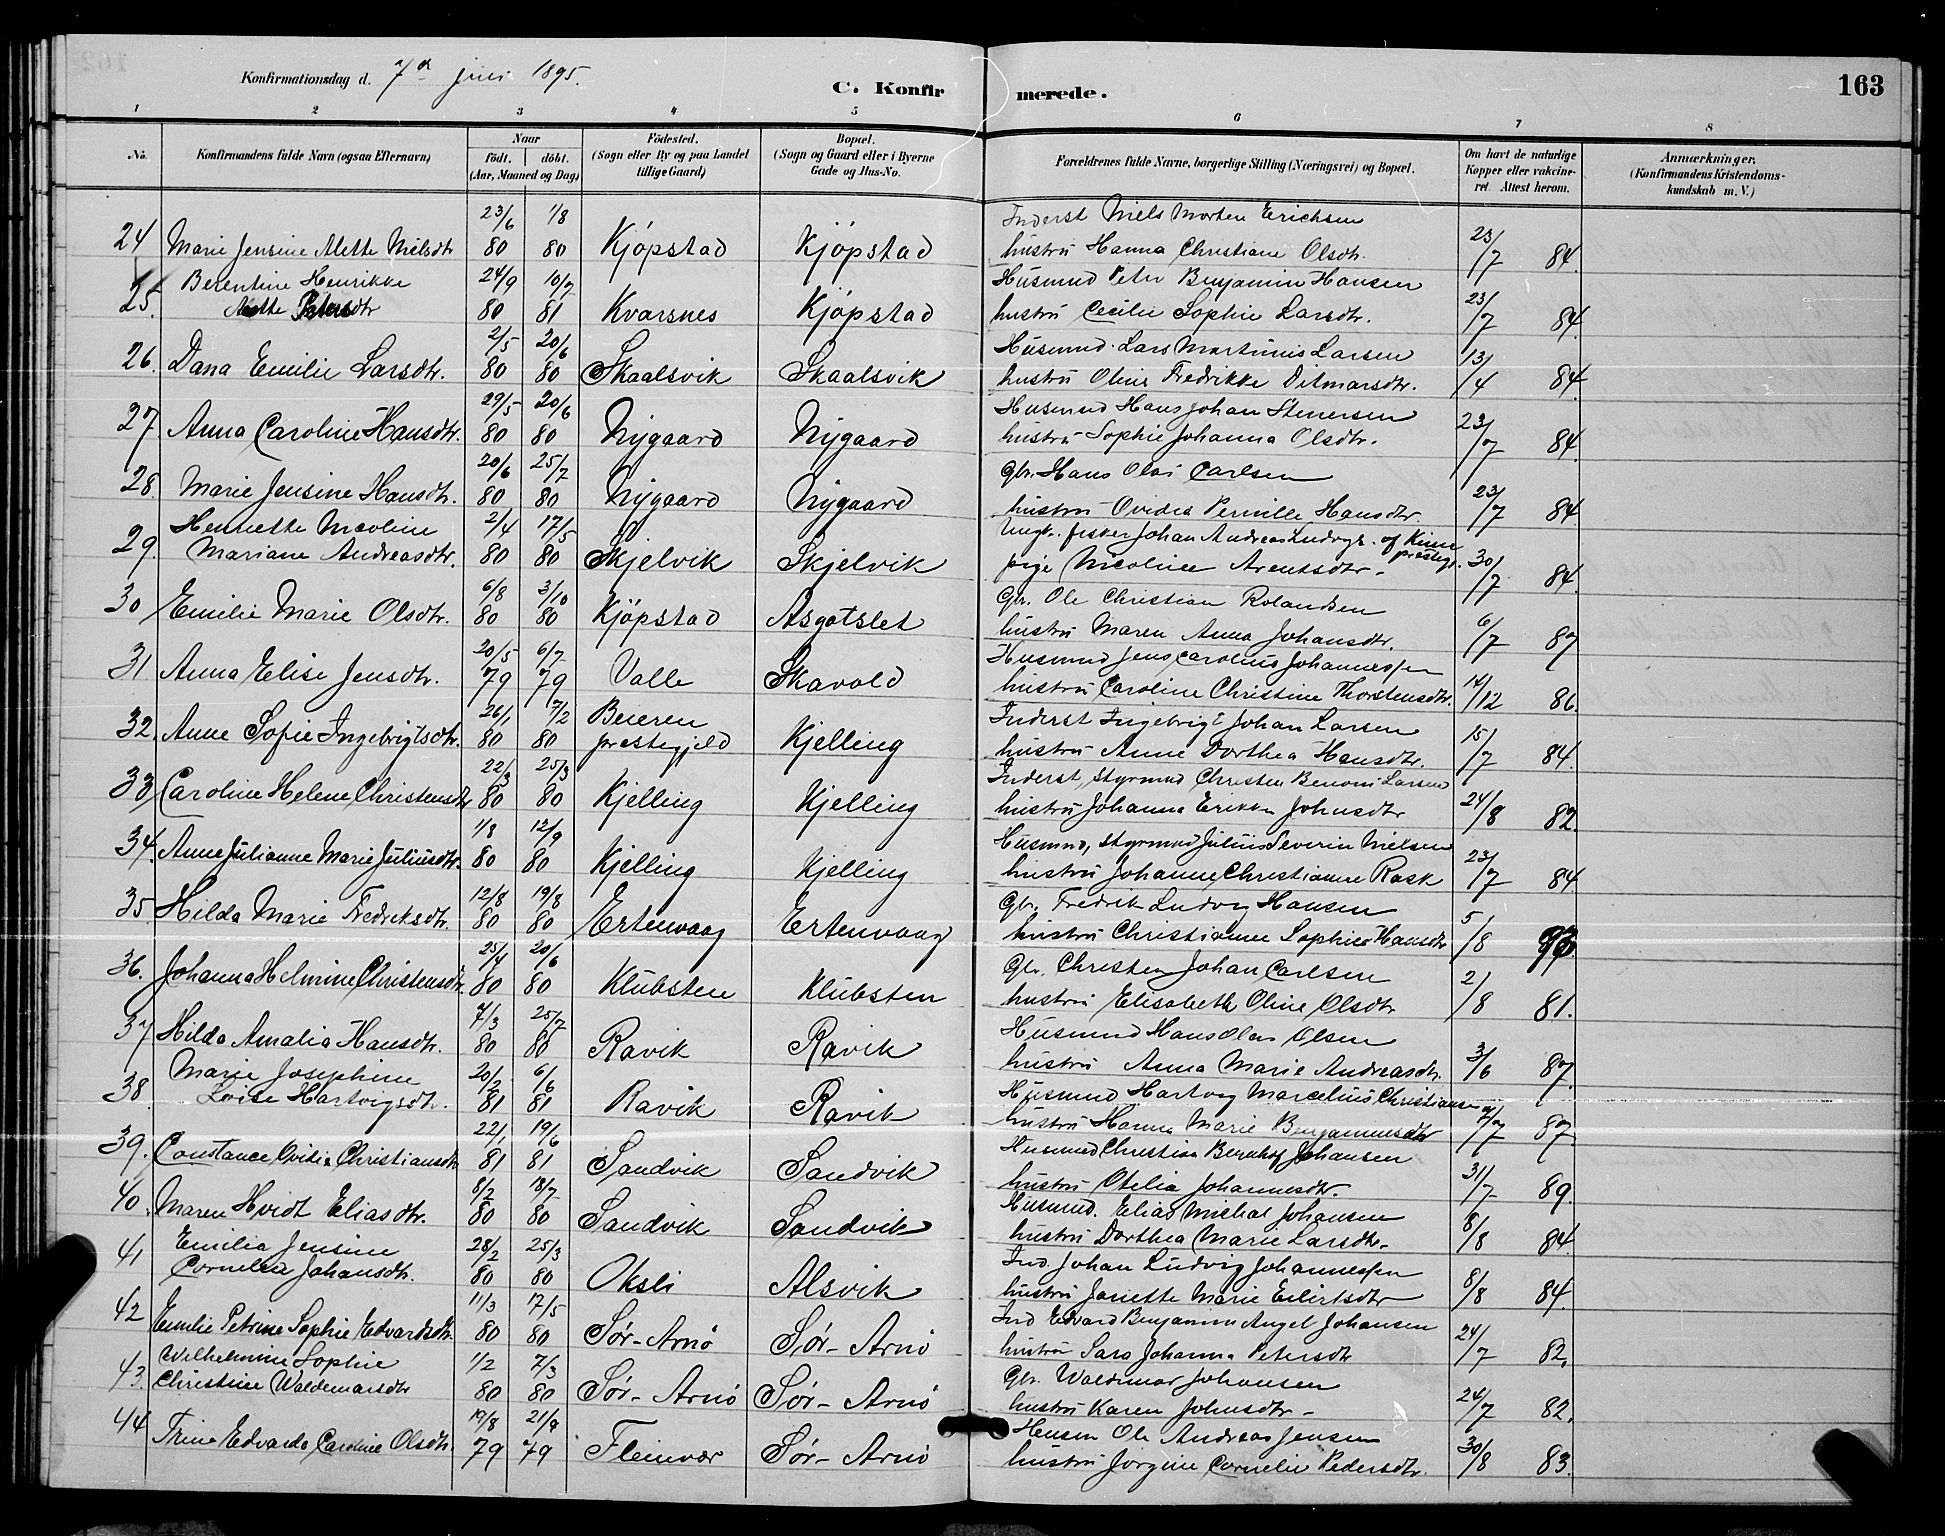 Konfirmationsdag d. 7de juni 1895.
C. Konfirmerede.
163
1 2 3 4 5 6 7 8
No.
Konfirmandens fulde Navn (ogsaa Efternavn)
Naar
födt. döbt.
(Aar, Maaned og Dag)
Födested.
(Sogn eller By og paa Landet
tillige Gaard)
Bopæl.
(Sogn og Gaard eller i Byerne
Gade og Hus-No.
Forældrenes fulde Navne, borgerlige Stilling (Næringsvei) og Bopæl.
Om havt de naturlige
Kopper eller vakcine-
ret. Attest herom.
Anmærkninger,
(Konfirmandens Kristendoms-
kundskab m. V.)
23/6 1/8 Inderst Niels Morten Erichsen
24 Marie Jensine Alette Nilsdtr 80 80 Kjöpstad Kjöpstad hustru Hanna Christiane Olsdtr. 23/7 84.
Berentine Henrikke 24/9 10/7 Husmand Peter Benjamin Hansen
25. Mette Petersdtr 80 81 Kvarsnes Kjöpstad hustru Cecilie Sophie Larsdtr. 23/7 84.
2/5 20/6 Husmnd. Lars Martinus Larsen
26. Dana Emilie Larsdtr. 80 80 Skaalsvik Skaalsvik hustru Oline Fredrikke Ditmarsdtr. 13/4 84.
29/5 20/6 Husmnd Hans Johan Stenersen
27. Anna Caroline Hansdtr. 80 80 Nygaard Nygaard hustru Sophie Johanna Olsdtr. 23/7 84.
20/6 25/7 Gbr. Hans Olai Carlsen
28. Marie Jensine Hansdtr. 80 80 Nygaard Nygaard hustru Ovidia Pernille Hansdtr. 23/7 84
Henriette Nicoline 2/4 17/5 Ungk. fisker Johan Andreas Ludvigs. af Kinn prestegj.
29. Mariane Andreasdtr. 80 80 Skjelvik Skjelvik pige Nicoline Arentsdtr. 30/7 84.
6/8 3/10 Gbr. Ole Christian Rolandsen
30 Emilie Marie Olsdtr. 80 80 Kjöpstad Asgotslet hustru Maren Anna Johansdtr. 6/7 87
20/5 6/7 Husmnd Jens Carolius Johannessen
31 Anna Elise Jensdtr. 79 79 Valle Skavold hustru Caroline Christine Thorstensdtr. 14/12 86.
26/1 7/2 Beieren Inderst Ingebrigt Johan Larsen
32. Anne Sofie Ingebrigtsdtr. 80 80 prestegjeld Kjelling hustru Anne Dorthea Hansdtr. 15/7 84.
22/3 25/3 Inderst, styrmnd Christen Benoni Larsen
33 Caroline Helene Christensdtr 80 80 Kjelling Kjelling hustru Johanna Erikka Johnsdtr 24/8 82.
1/8 12/9 Husmnd, styrmnd Julius Severin Nielsen
34. Anne Julianne Marie Juliusdtr. 80 80 Kjelling Kjelling hustru Johanne Christianne Rask 23/7 84
12/8 19/8 Gbr. Fredrik Ludvig Hansen
35. Hilda Marie Fredriksdtr. 80 80 Ertenvaag Ertenvaag hustru Christianne Sophie Hansdtr 5/8
25/4 20/6 Gbr. Christen Johan Carlsen
36. Johanna Helmine Christensdtr. 80 80 Klubsten Klubsten hustru Elisabeth Oline Olsdtr 2/8 81.
7/3 25/7 Husmnd Hans Olai Olsen
37 Hilda Amalia Hansdtr. 80 80 Ravik Ravik hustru Anna Marie Andreasdtr. 3/6 87.
Marie Josephine 20/2 6/6 Husmnd Hartvig Marcelius Christiansen
38. Lovise Hartvigsdtr. 81 81 Ravik Ravik hustru Hanna Marie Benjaminsdtr 9/7 87.
22/1 19/6 Husmnd Christian Bernhof Johansen
39. Constance Ovidia Christiansdtr 81 81 Sandvik Sandvik hustru Otelia Johannesdtr. 31/7 89.
8/2 18/7 Husmnd. Elias Michal Johansen
40. Maren Hvidt Eliasdtr. 80 80 Sandvik Sandvik hustru Dorthea Marie Larsdtr. 8/8 84.
Emilia Jensine 28/2 25/3 Ind. Johan Ludvig Johannessen
41 Cornelia Johansdtr. 80 80 Oksli Alsvik hustru Jariette Marie Eilertsdtr 8/8 84.
11/3 17/5 Ind Edvard Benjamin Angel Johansen
42 Emilie Petrine Sophie Edvardsdtr. 80 80 Sör-Arnö Sör-Arnö hustru Sara Johanna Petersdtr 24/7 82.
Wilhelmine Sophie 1/2 7/3 Gbr. Waldemar Johansen
43. Christine Waldemarsdtr 80 80 Sör-Arnö Sör-Arnö hustru Karen Johnsdtr 24/7 82.
19/8 21/9 Ole Andreas Jensen
44 Trine Edvarda Caroline Olsdtr. 79 79 Fleinvær Sör-Arnö hustru Jorgine Cornelie Pedersdtr. 30/8 83.